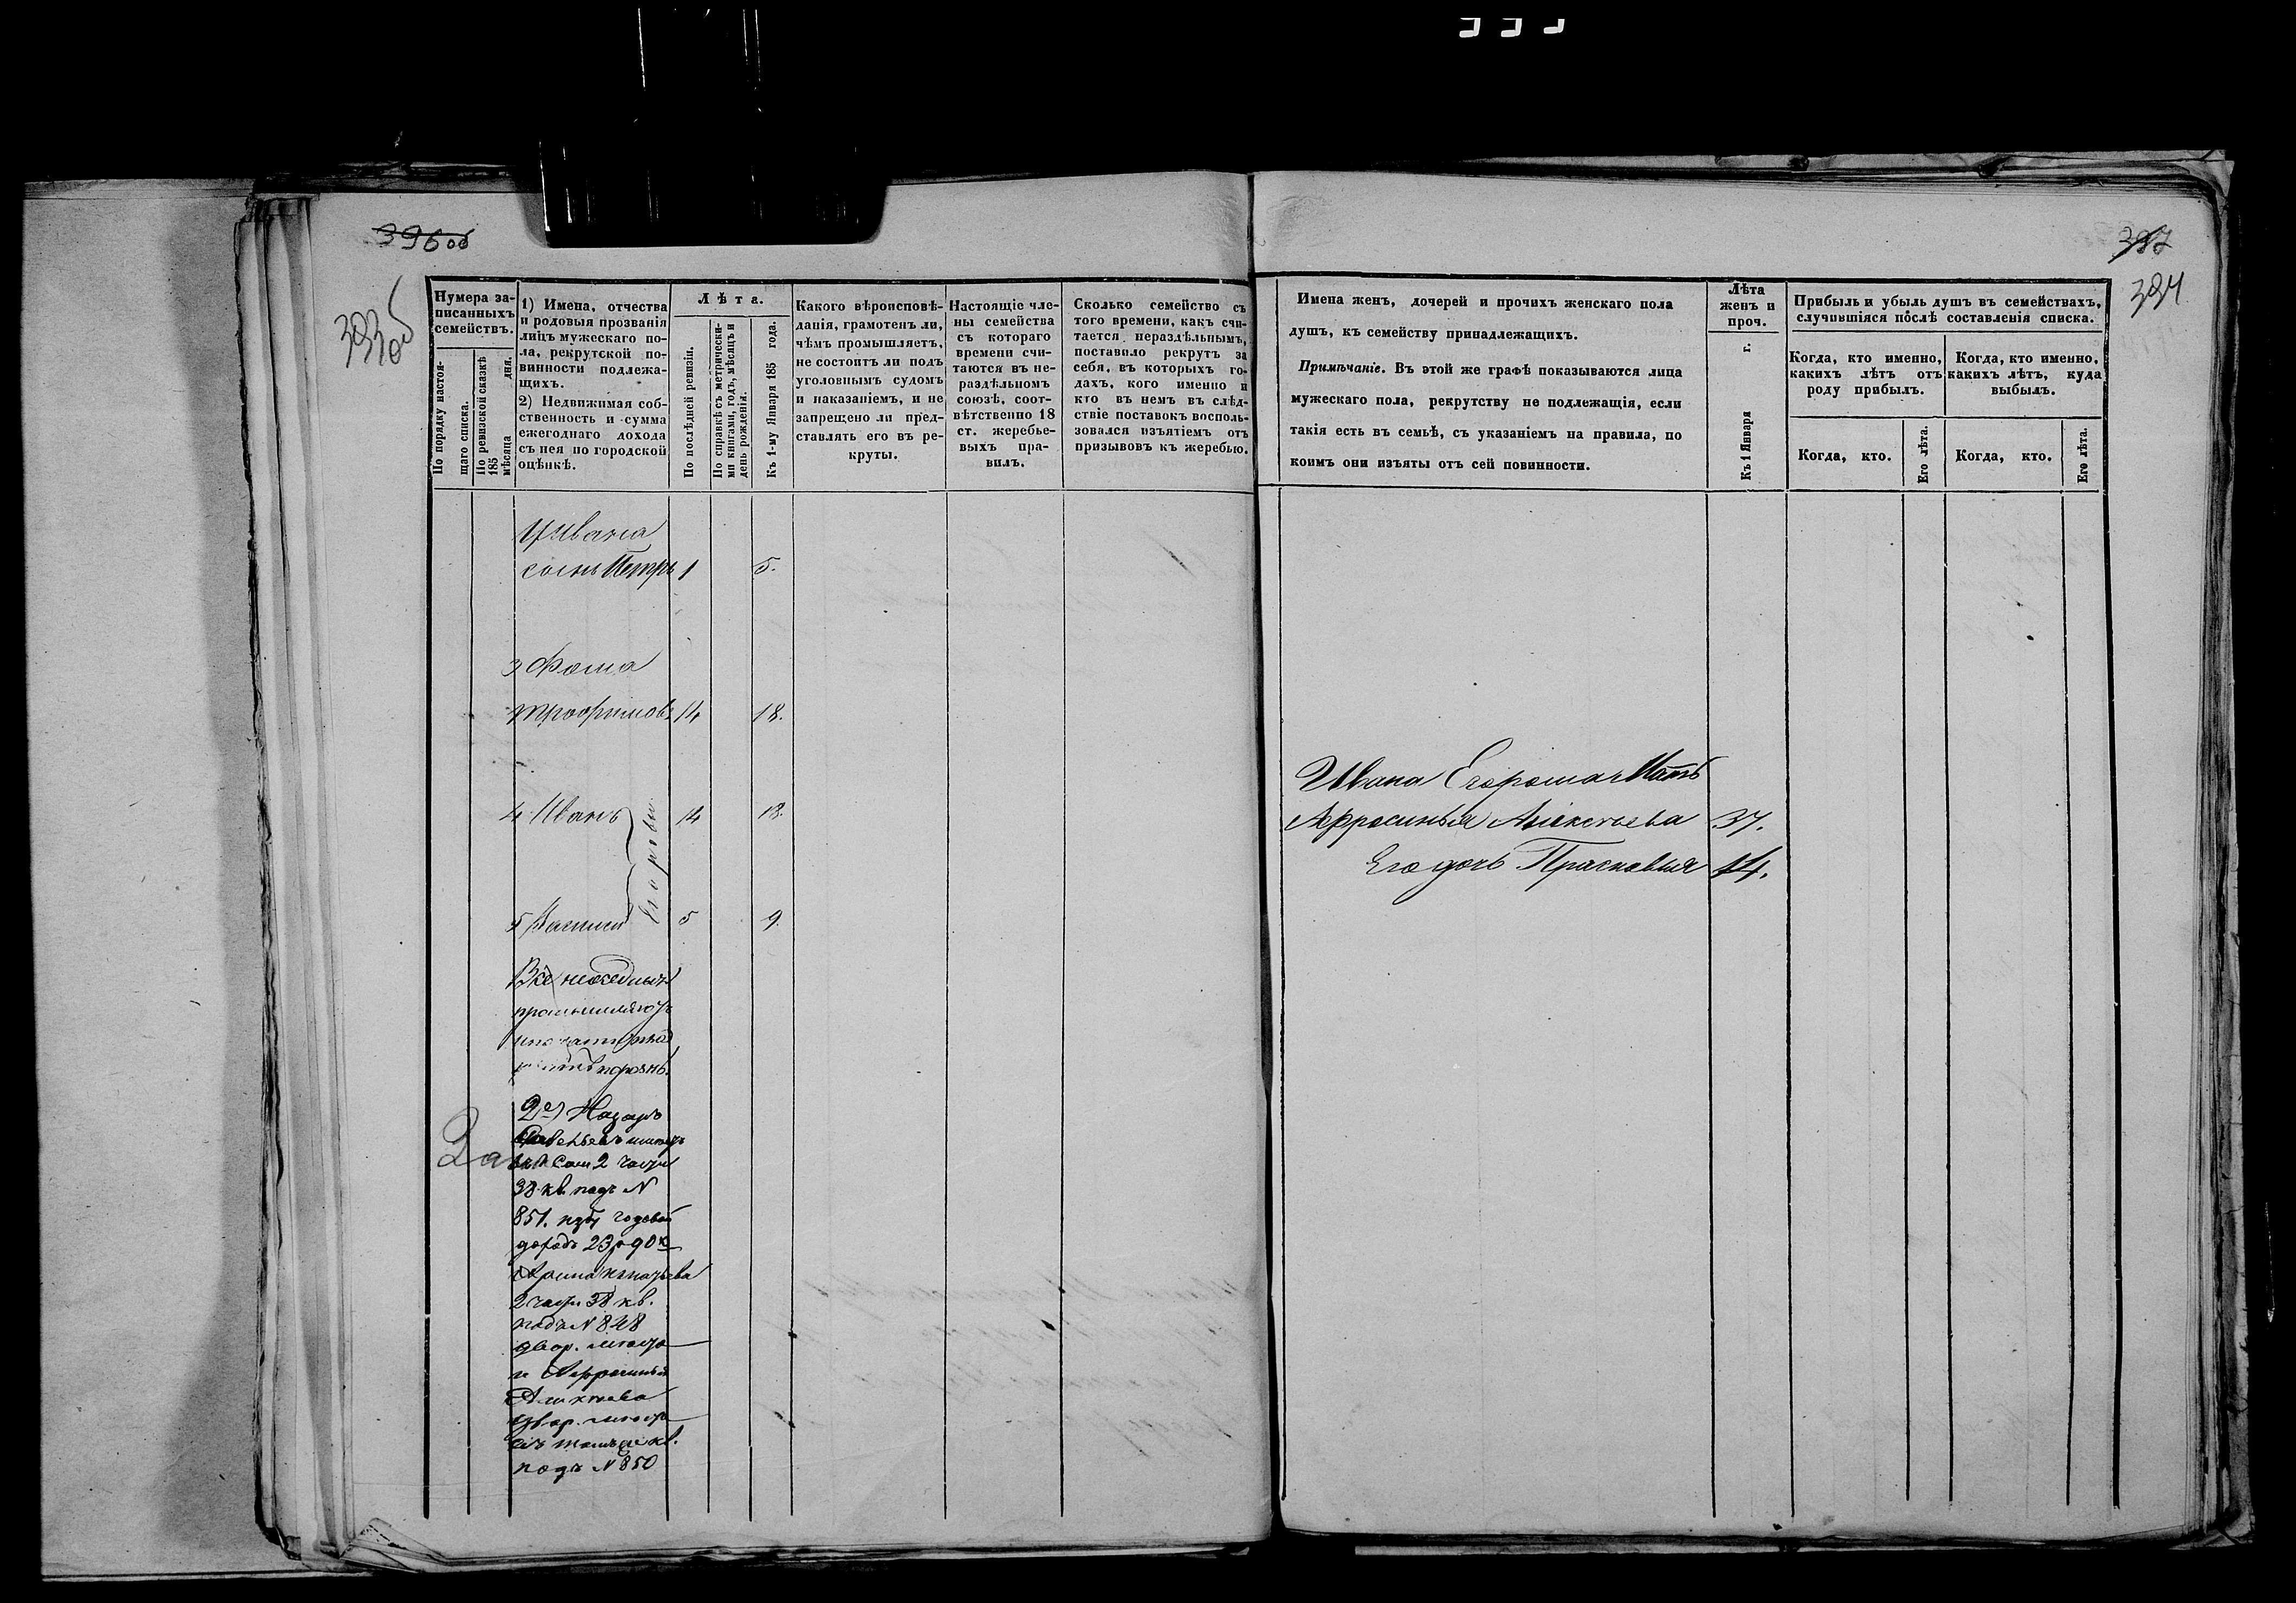 396 об
393 об
Нумера записанныхъ семействъ.
По порядку настоящаго списка.
По ревизской сказкѣ 185 мѣсяца дня.
1) Имена, отчества
и родовыя прозванія
лицъ мужескаго по-
ла, рекрутской по-
винности подлежа-
щихъ.
2) Недвижимая соб-
ственность и сумма
ежегоднаго дохода
съ нея по городской
оцѣнкѣ.
Лѣта.
По послѣдней ревизіи.
По справкѣ съ метрически-
ми книгами, годъ, мѣсяцъ и
день рожденія.
Къ 1-му Января 185 года.
Какого вѣроисповѣ-
данія, грамотенъ ли,
чѣмъ промышляетъ,
не состоитъ ли подъ
уголовнымъ судомъ
и наказаніемъ, и не
запрещено ли пред-
ставлять его въ ре-
круты.
Настоящіе чле-
ны семейства
съ котораго
времени счи-
таются въ не-
раздѣльномъ
союзѣ, соот-
вѣтственно 18
ст. жеребье-
выхъ пра-
вилъ.
Сколько семейство съ
того времени, какъ счи-
тается нераздѣльнымъ,
поставило рекрутъ за
себя, въ которыхъ го-
дахъ, кого именно и
кто въ немъ въ слѣд-
ствіе поставокъ восполь-
зовался изъятіемъ отъ
призывовъ къ жеребью.
У Ивана
сынъ Петръ 1 5.
3 Фома
Трофимовъ 14 18.
4 Иванъ 14 18.
Егоровы
5 5 9.
2е) Назаръ
2 части
38 кв. подъ N
851. годовой
доходъ 23 р 90 к
2 части 38 кв.
подъ N 848
двор. место
и Афросинья
Алексеева
двор. место
въ томъ же кв.
подъ N 850
397
394
Имена женъ, дочерей и прочихъ женскаго пола
душъ, къ семейству принадлежащихъ.
Примѣчаніе. Въ этой же графѣ показываются лица
мужескаго пола, рекрутству не подлежащія, если
такія есть въ семьѣ, съ указаніемъ на правила, по
коимъ они изъяты отъ сей повинности.
Лѣта
женъ и
проч.
Къ 1 Января г.
Прибыль и убыль душъ въ семействахъ,
случившіяся послѣ составленія списка.
Когда, кто именно,
какихъ лѣтъ отъ
роду прибылъ.
Когда, кто именно,
какихъ лѣтъ, куда
выбылъ.
Когда, кто.
Его лѣта.
Когда, кто.
Его лѣта.
Ивана Егорова Мать
Афросинья Алексеева 37.
Его дочь Прасковья 14.